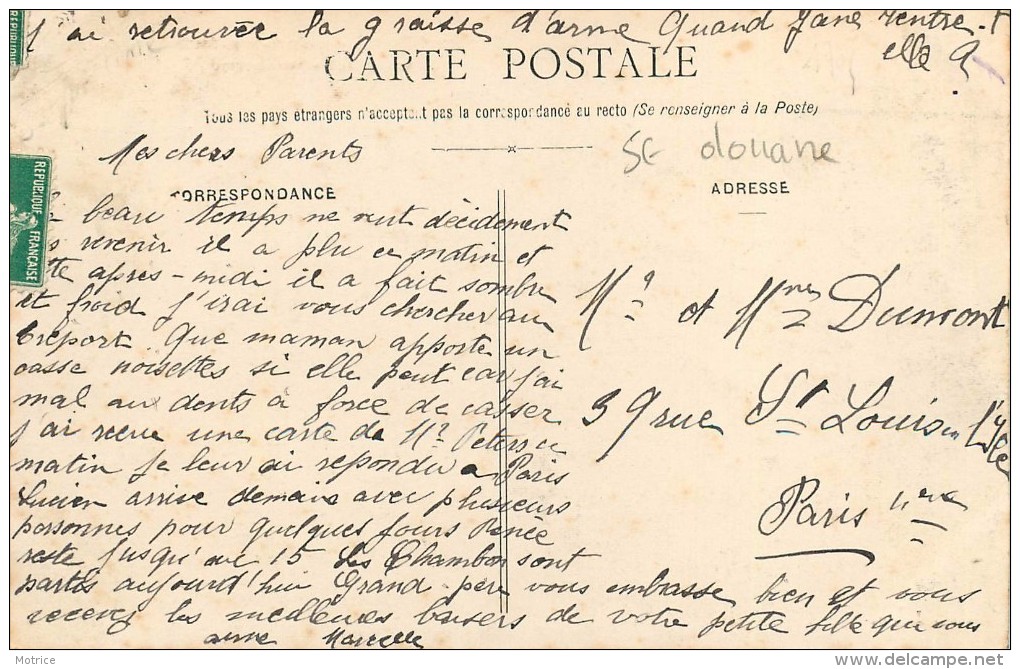 J'ai retrouvée la graisse d'arme Quand Jane rentre-t
elle
CARTE POSTALE
Tous les pays étrangers n'acceptent pas la correspondance au recto (Se renseigner à la Poste)
Mes chers Parents
douane
CORRESPONDANCE
ADRESSE
REPUBLIQUE FRANÇAISE
beau temps ne veut décidement
revenir il a plu ce matin et
apres-midi il a fait sombre
et froid J'irai vous chercher au
treport. Que maman apporte un
casse noisettes si elle peut car j'ai
mal aux dents à force de casser
J'ai recue une carte de Mr Peters ce
matin je leur ai repondu a Paris
Lucien arrive demain avec plusieurs
personnes pour quelques jours Renée
reste jusqu'au 15 Les Chambon sont
partis aujourd'hui Grand père vous embrasse bien et vous
recevez les meilleures baisers de votre petite fille qui vous
aime Marcelle
Mr et Mme Dumont
39 rue St Louis en l'Ile
Paris 4eme
Motrice
www.delcampe.net